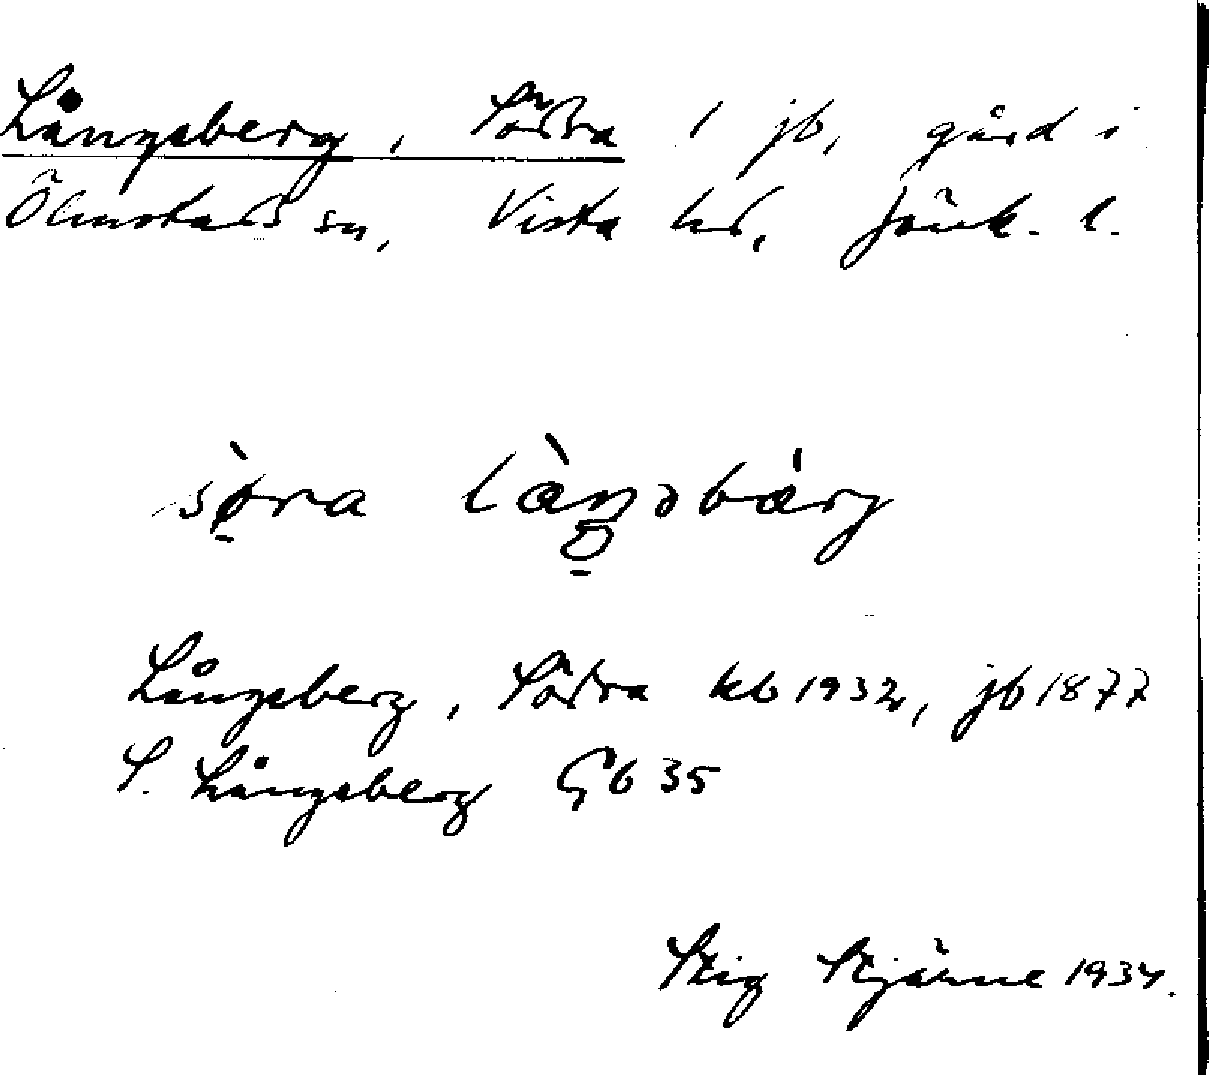 Långsberg, Södra 1 jb, gård i
Ölmstads sn, Vista hd, Jönk. l.
sø̀ra
Långsberg, Södra kb 1932, jb 1877
S. Långsberg Gb 35
Stig Stjärne 1934.